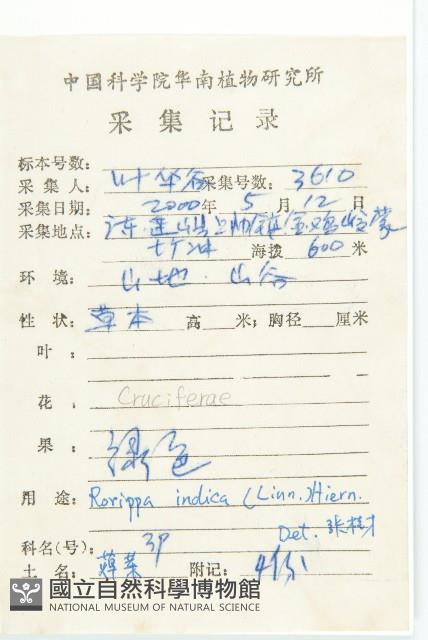 中国科学院华南植物研究所
采集记录
标本号数:
采集人: 叶华谷 采集号数: 3610
采集日期: 2000年 5月 12日
采集地点: 连 上帅镇
海拨 600 米
环境: 山地 山谷
性状: 草本 高 米; 胸径 厘米
叶:
花: Cruciferae
果: 绿色
用途: Rorippa indica (Linn.) Hiern.
Det. 张桂才
科名(号): 39
土名: 蔊菜 附记: 4份
國立自然科學博物館
NATIONAL MUSEUM OF NATURAL SCIENCE